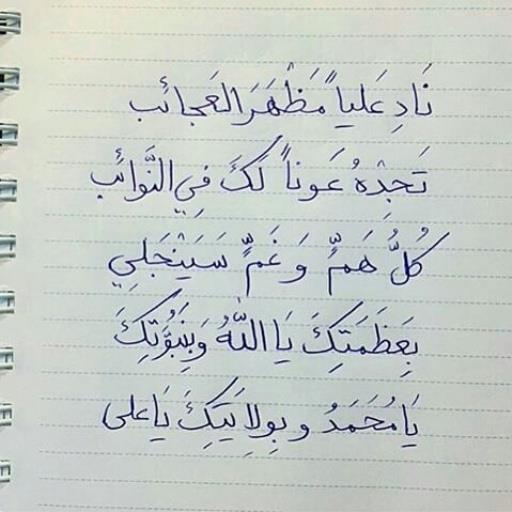 نَادِ عَلياً مَظْهَرَ العَجائب
تَجِدْهُ عَوناً لَكَ فِي النَّوائب
كُلُّ هَمٍّ وَ غَمٍّ سَيَنْجَلِي
بِعَظَمَتِكَ يَا اللّٰهُ وَبِنَبُوَّتِكَ
يَا مُحَمَدُ وبِوِلايَتِكَ يَا على